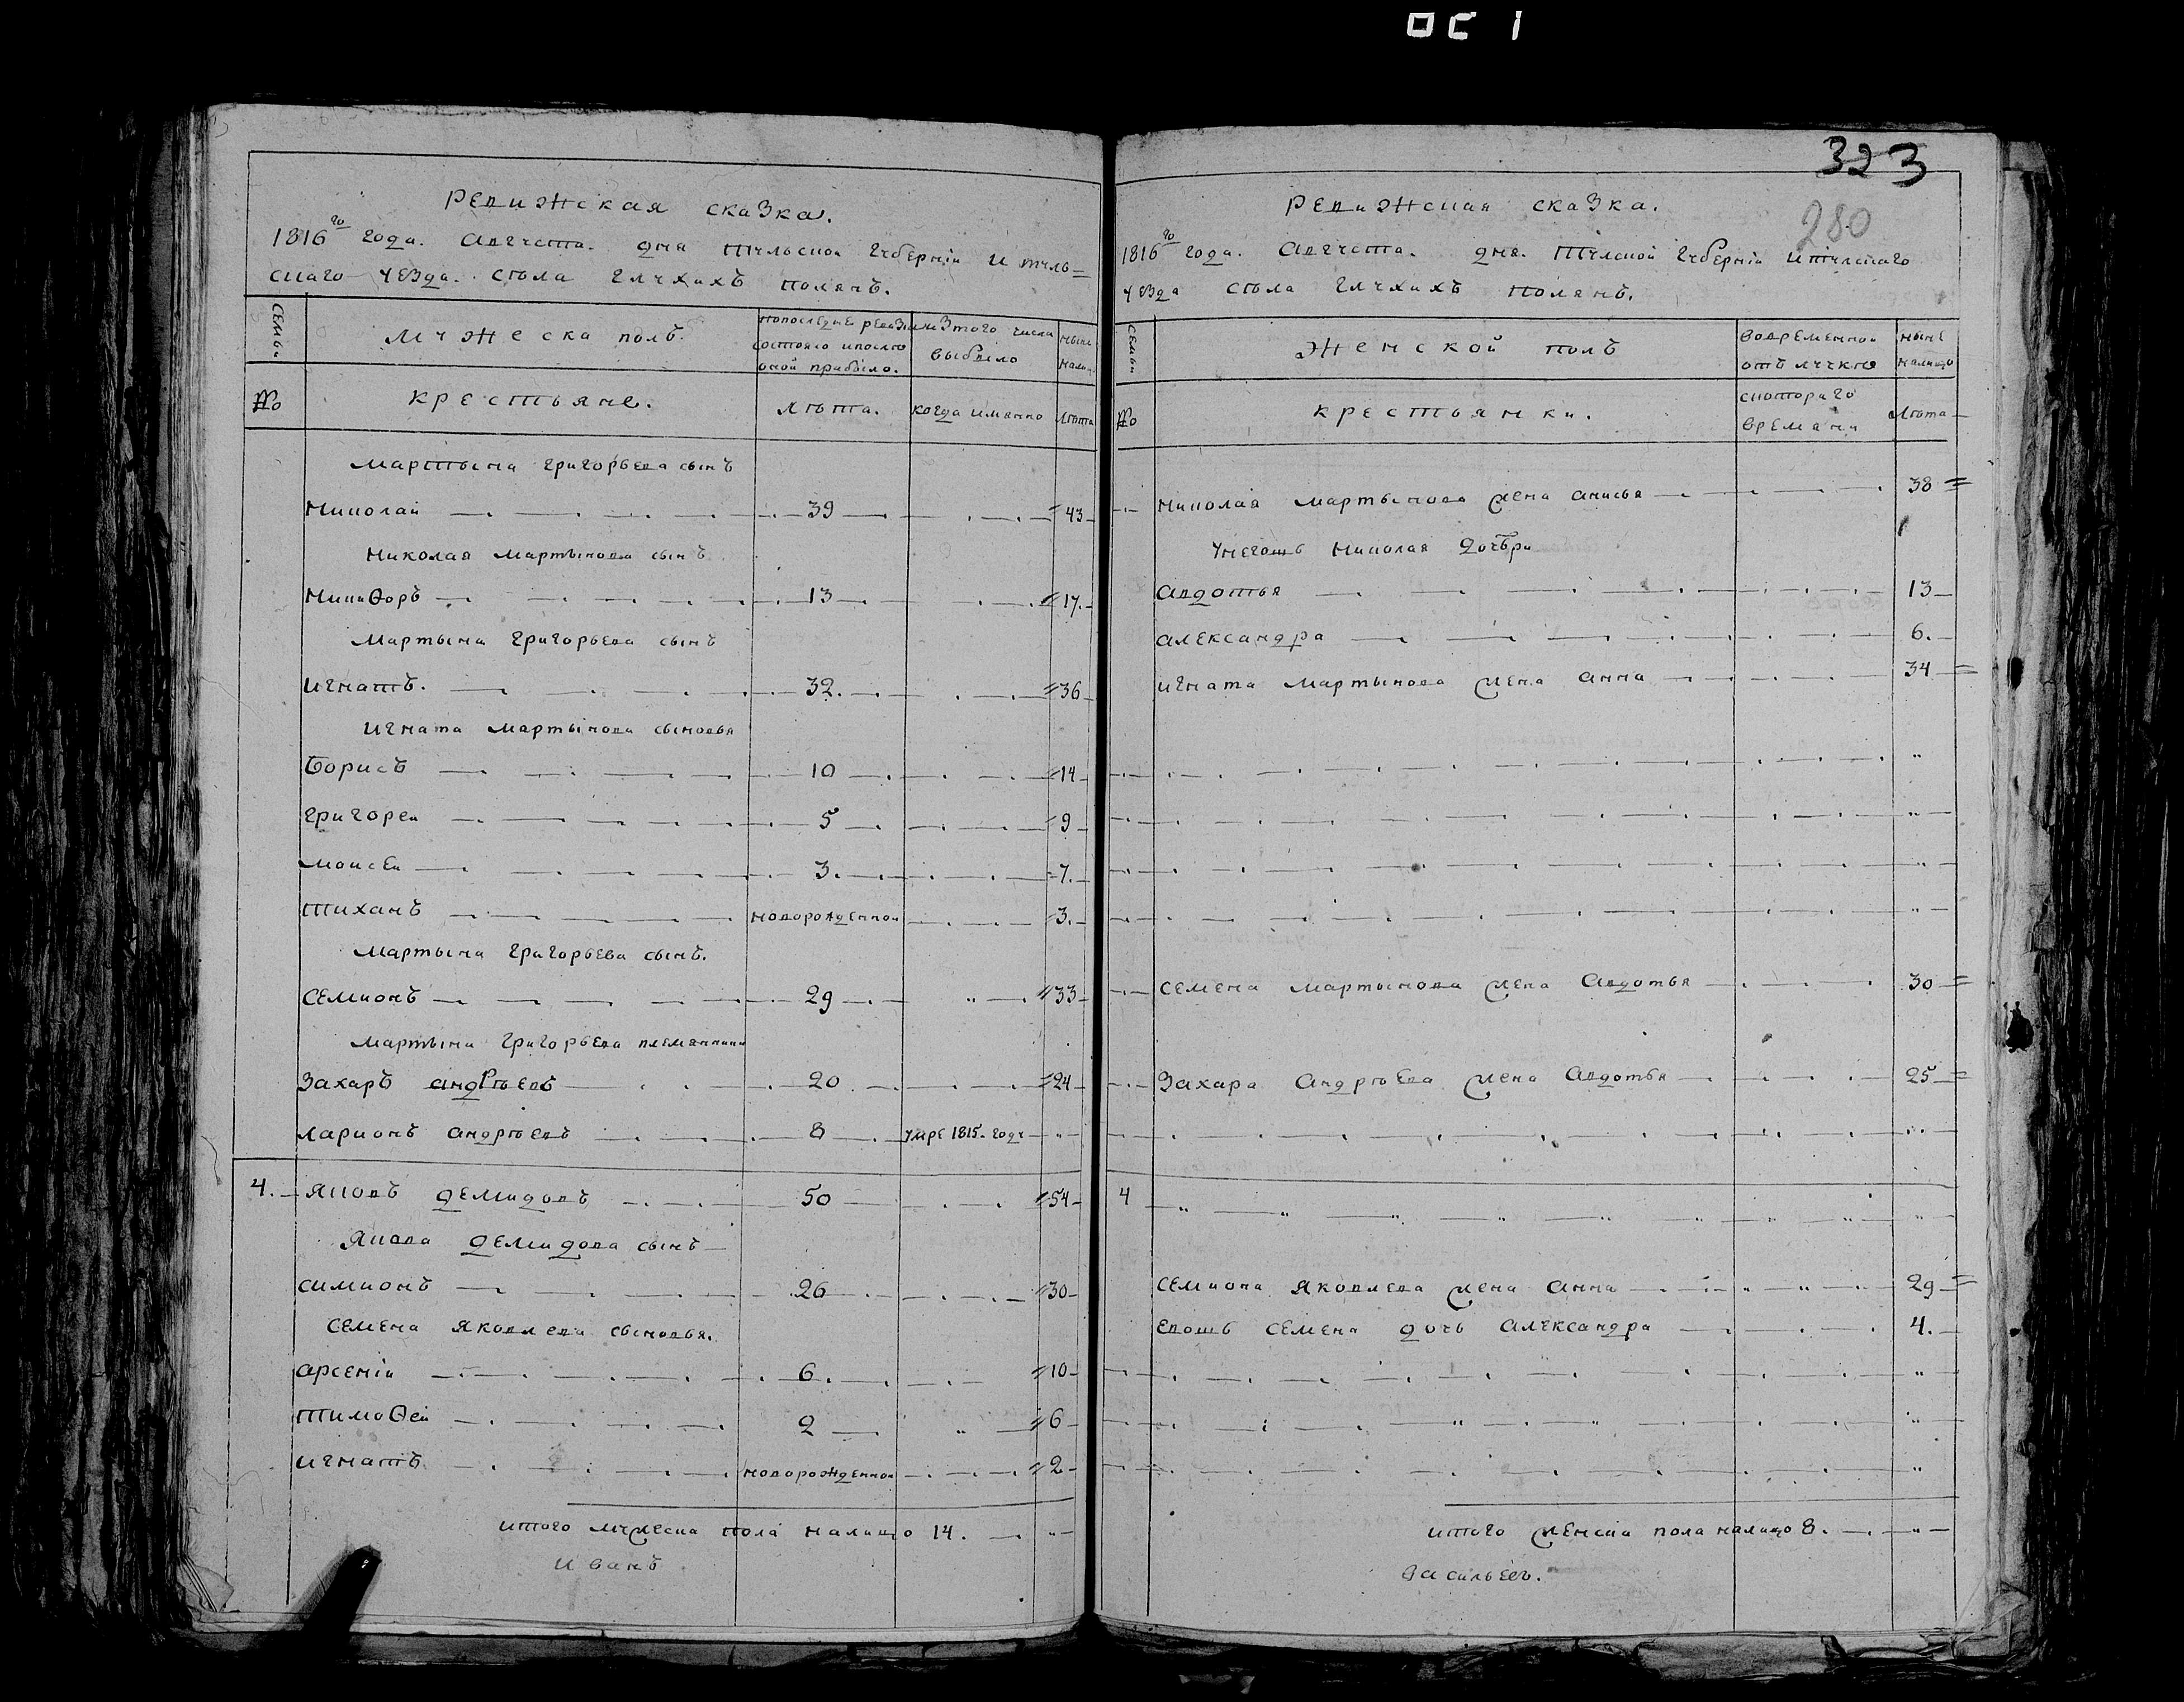 323
280
Ревижская сказка.
1816го года. Августа. дня Тульской Губерніи и туль=
скаго уезда. села глухихъ полянъ.
Семьи
Мужеска полъ.
попоследней ревизіи
состояло и после
оной прибыло.
из того числа
выбыло
ныне
налицо
№
крестьяне.
лѣта.
когда имянно
лѣта
Мартына григорьева сынъ
Николай 39 43
Николая мартынова сынъ
Никиѳоръ 13 17.
Мартына григорьева сынъ
игнатъ. 32. 36
игната мартынова сыновья
Борисъ 10 14
григореи 5 9
моисеи 3. 7.
тиханъ новорожденнои 3.
мартына григорьева сынъ.
семионъ 29 33
мартына григорьева племянники
Захаръ андрѣевъ 20. 24
ларионъ андрѣевъ 8 умре 1815. году
4. яковъ демидовъ 50 54
якова демидова сынъ
симионъ 26 30
семена яковлева сыновья.
арсеніи 6. 10
тимоѳеи 2 6
игнатъ новорожденнои 2
итого мужеска пола налицо 14.
иванъ
Ревижская сказка.
1816го года. Августа. дня. Тулской Губерніи итулскаго
уезда села глухихъ полянъ.
Семьи
Женской полъ
вовременной
отълучке
ныне
налицо
№
крестьянки.
скоторого
времени
лѣта
николая мартынова жена анисья 38
унегошъ николая дочери
авдотья 13
александра 6.
игната мартынова жена анна 34
семена мартынова жена авдотья 30
Захара андрѣева жена авдотья 25
4
семиона яковлева жена анна 29
евошъ семена дочь александра 4.
итого женска пола налицо 8.
васильевъ.